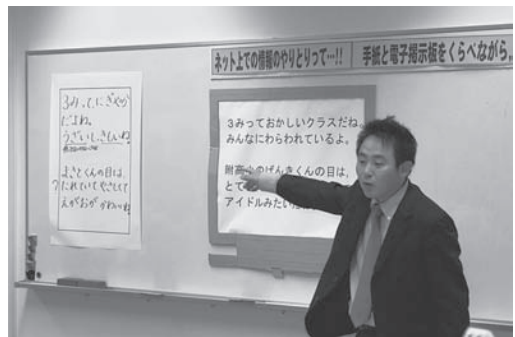 ネット上での情報のやりとりって…!!
手紙と電子掲示板をくらべながら、
3みってにぎやか
だよね。
うざいしさいしいね。
まさとくんの目は、
たれていてやさしくて
えがおがかわいいね。
?
3みっておかしいクラスだね
みんなにわらわれているよ。
附高小のげんきくんの目は、
とて
アイドルみたい